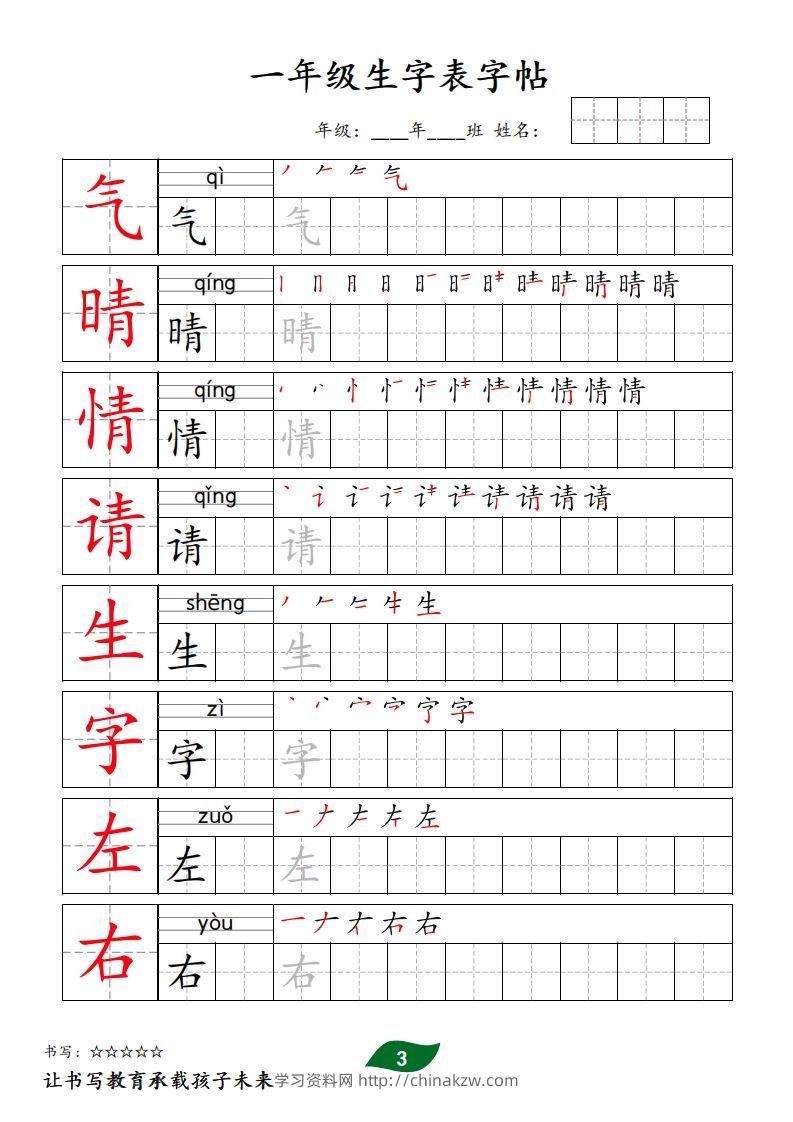 一年级生字表字帖
年级：____年____班 姓名：
气 qì
气 气
晴 qíng
晴 晴
情 qíng
情 情
请 qǐng
请 请
生 shēng
生 生
字 zì
字 字
左 zuǒ
左 左
右 yòu
右 右
书写：☆☆☆☆☆
3
让书写教育承载孩子未来学习资料网 http://chinakzw.com